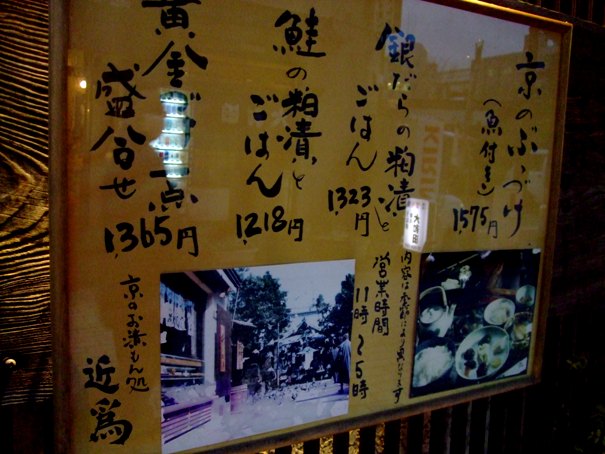 京のぶぶづけ
(魚付き)
1,575円
銀だらの粕漬と
ごはん
1,323円
鮭の粕漬と
ごはん
1,218円
盛合せ
1,365円
内容は季節により異なります
営業時間
11時～5時
京のお漬もん処
近為